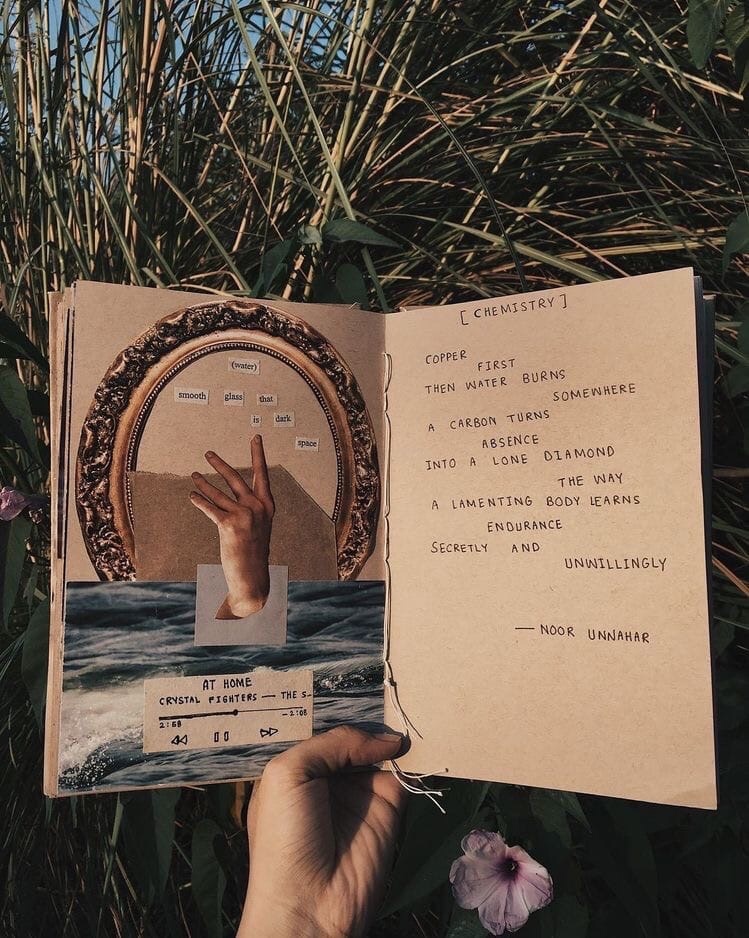 (water)
smooth glass that
is dark
space
AT HOME
CRYSTAL FIGHTERS — THE S-
2:58 -2:08
[CHEMISTRY]
COPPER
FIRST
THEN WATER BURNS
SOMEWHERE
A CARBON TURNS
ABSENCE
INTO A LONE DIAMOND
THE WAY
A LAMENTING BODY LEARNS
ENDURANCE
SECRETLY AND
UNWILLINGLY
— NOOR UNNAHAR